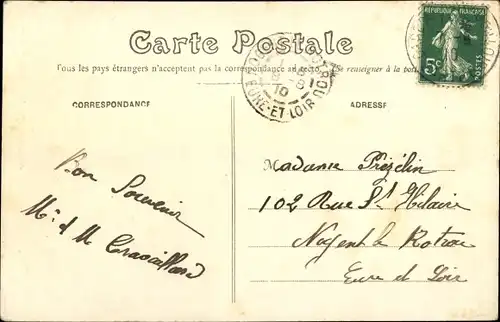 Carte Postale
RÉPUBLIQUE FRANÇAISE
5c
POSTES
Tous les pays étrangers n'acceptent pas la correspondance au recto. (Se renseigner à la
EURE-ET-LOIR
10
CORRESPONDANCE
ADRESSE
Bon Souvenir
Madame Prézelin
102 Rue St Hilaire
Nogent le Rotrou
Eure et Loir